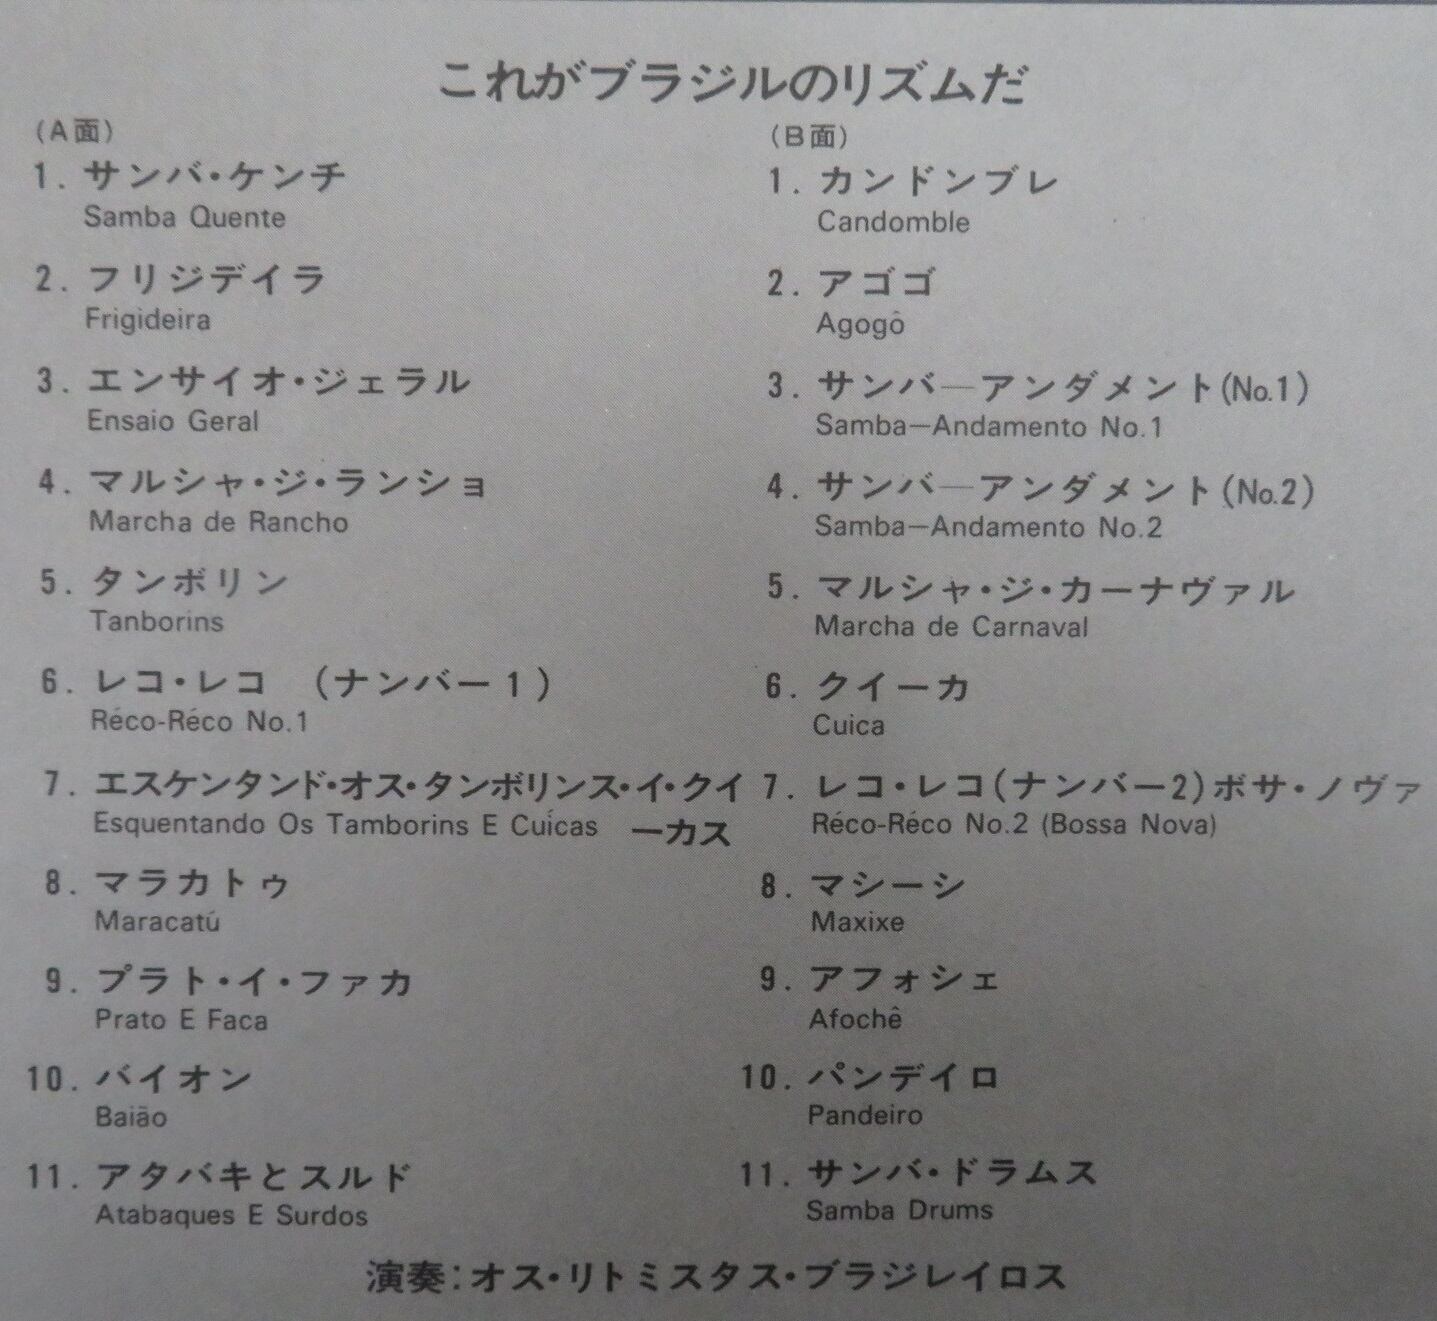 これがブラジルのリズムだ
(A面)
1. サンバ・ケンチ
Samba Quente
2. フリジデイラ
Frigideira
3. エンサイオ・ジェラル
Ensaio Geral
4. マルシャ・ジ・ランショ
Marcha de Rancho
5. タンボリン
Tanborins
6. レコ・レコ (ナンバー1)
Réco-Réco No.1
7. エスケンタンド・オス・タンボリンス・イ・クイ
ーカス
Esquentando Os Tamborins E Cuícas
8. マラカトゥ
Maracatú
9. プラト・イ・ファカ
Prato E Faca
10. バイオン
Baião
11. アタバキとスルド
Atabaques E Surdos
(B面)
1. カンドンブレ
Candomble
2. アゴゴ
Agogô
3. サンバ—アンダメント(No.1)
Samba—Andamento No.1
4. サンバ—アンダメント(No.2)
Samba—Andamento No.2
5. マルシャ・ジ・カーナヴァル
Marcha de Carnaval
6. クイーカ
Cuica
7. レコ・レコ(ナンバー2)ボサ・ノヴァ
Réco-Réco No.2 (Bossa Nova)
8. マシーシ
Maxixe
9. アフォシェ
Afochê
10. パンデイロ
Pandeiro
11. サンバ・ドラムス
Samba Drums
演奏:オス・リトミスタス・ブラジレイロス